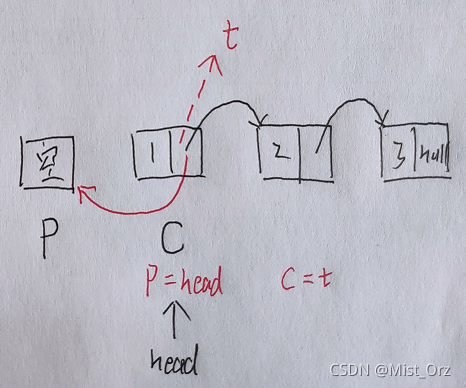 t
空
1
2
3 null
P
C
P=head
C=t
head
CSDN @Mist_Orz